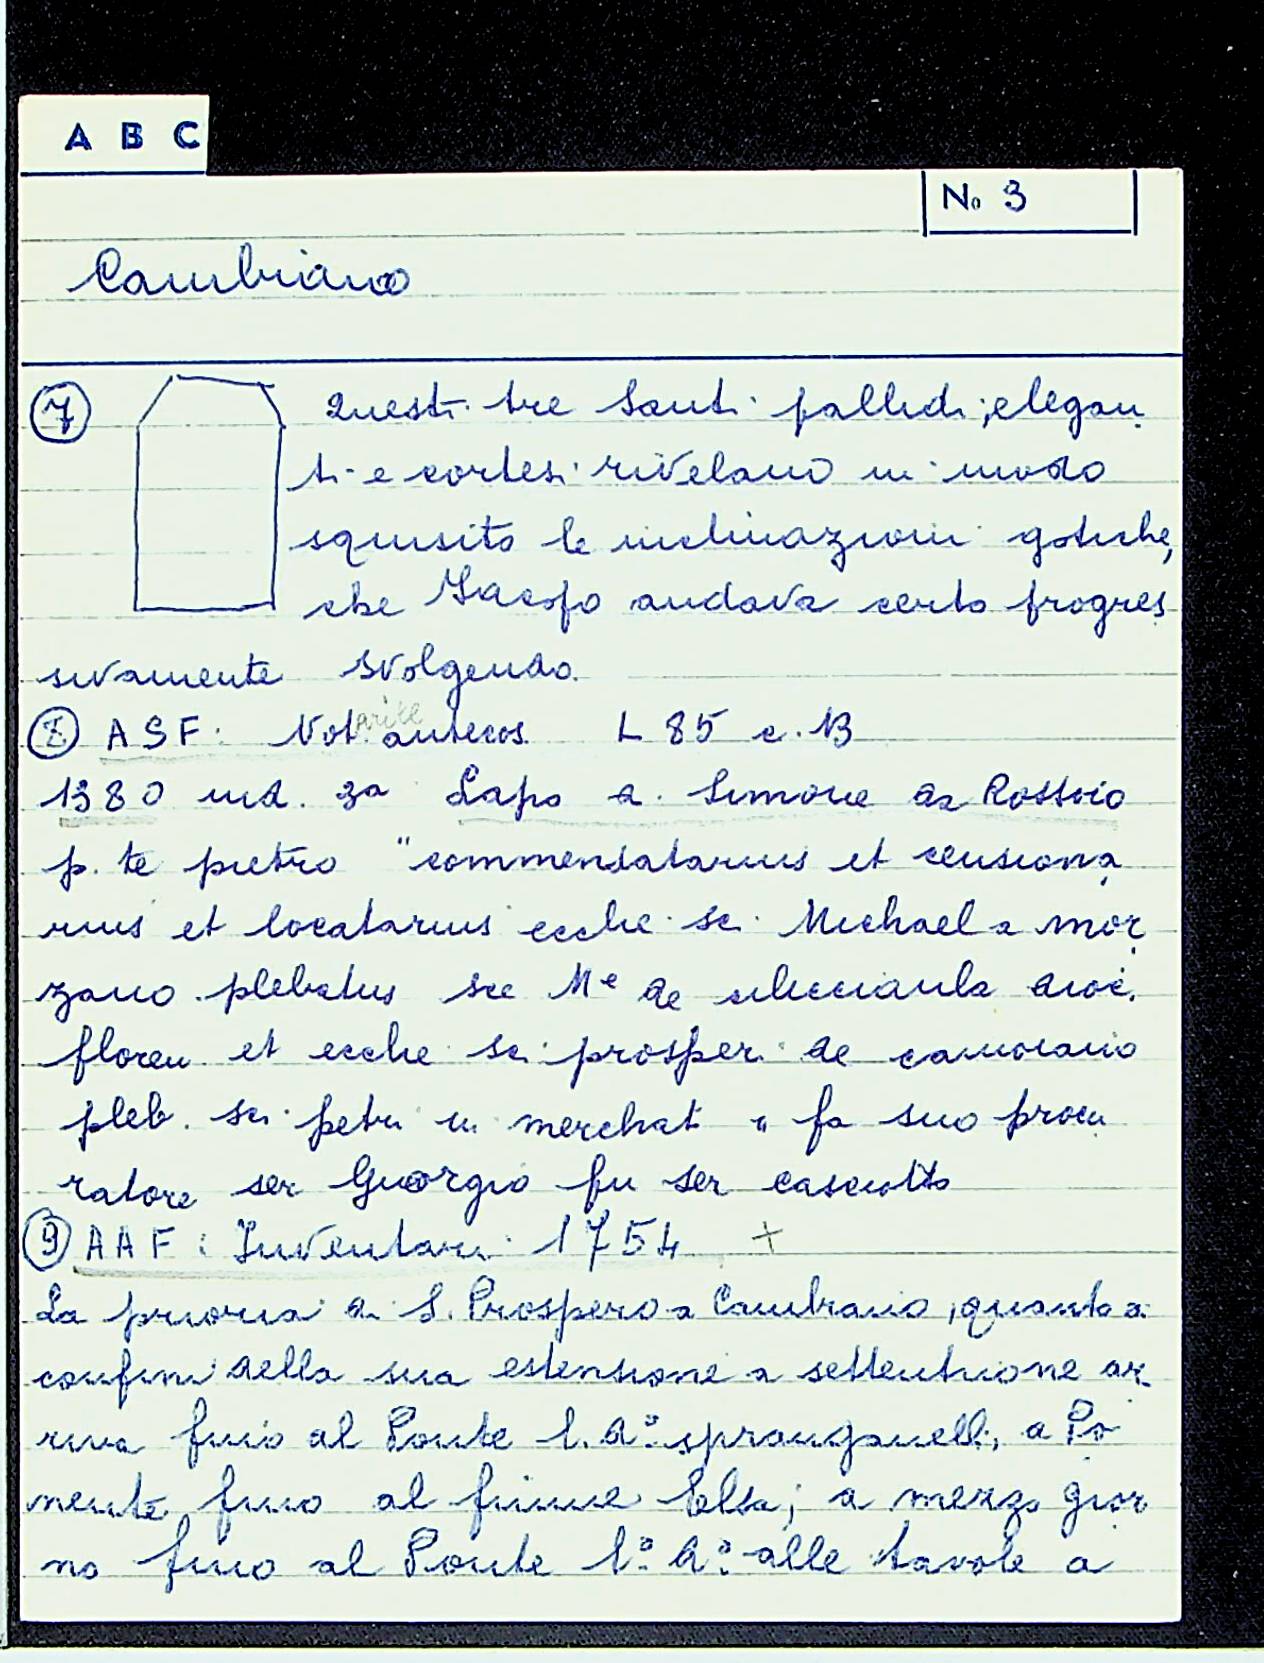 A B C
No 3
Cambiano
7 Questi tre Santi pallidi, elegan
ti e cortesi rivelano in modo
squisito le inclinazioni gotiche,
che Jacopo andava certo progres
sivamente svolgendo.
8 ASF: Not. antecos. L 85 c. 13
1380 ind. 3a Lapo d. Simone da
p. te pietro "commendatarius et censiona
rius et locatarius ecche sci Michael a mor
zano plebatus sce Me de dioc.
floren et ecche sci prosperi de
pleb. sci petri in merchat " fa suo procu
ratore ser Giorgio fu ser casciotto
9 AAF: Inventari 1754 +
La prioria di S. Prospero a Cambiano, quanto a
confini della sua estensione a settentrione ar
riva fino al Ponte l. d.o spranganelli, a Po
nente fino al fiume Elsa; a mezzo gior
no fino al Ponte l.o d.o alle tavole a